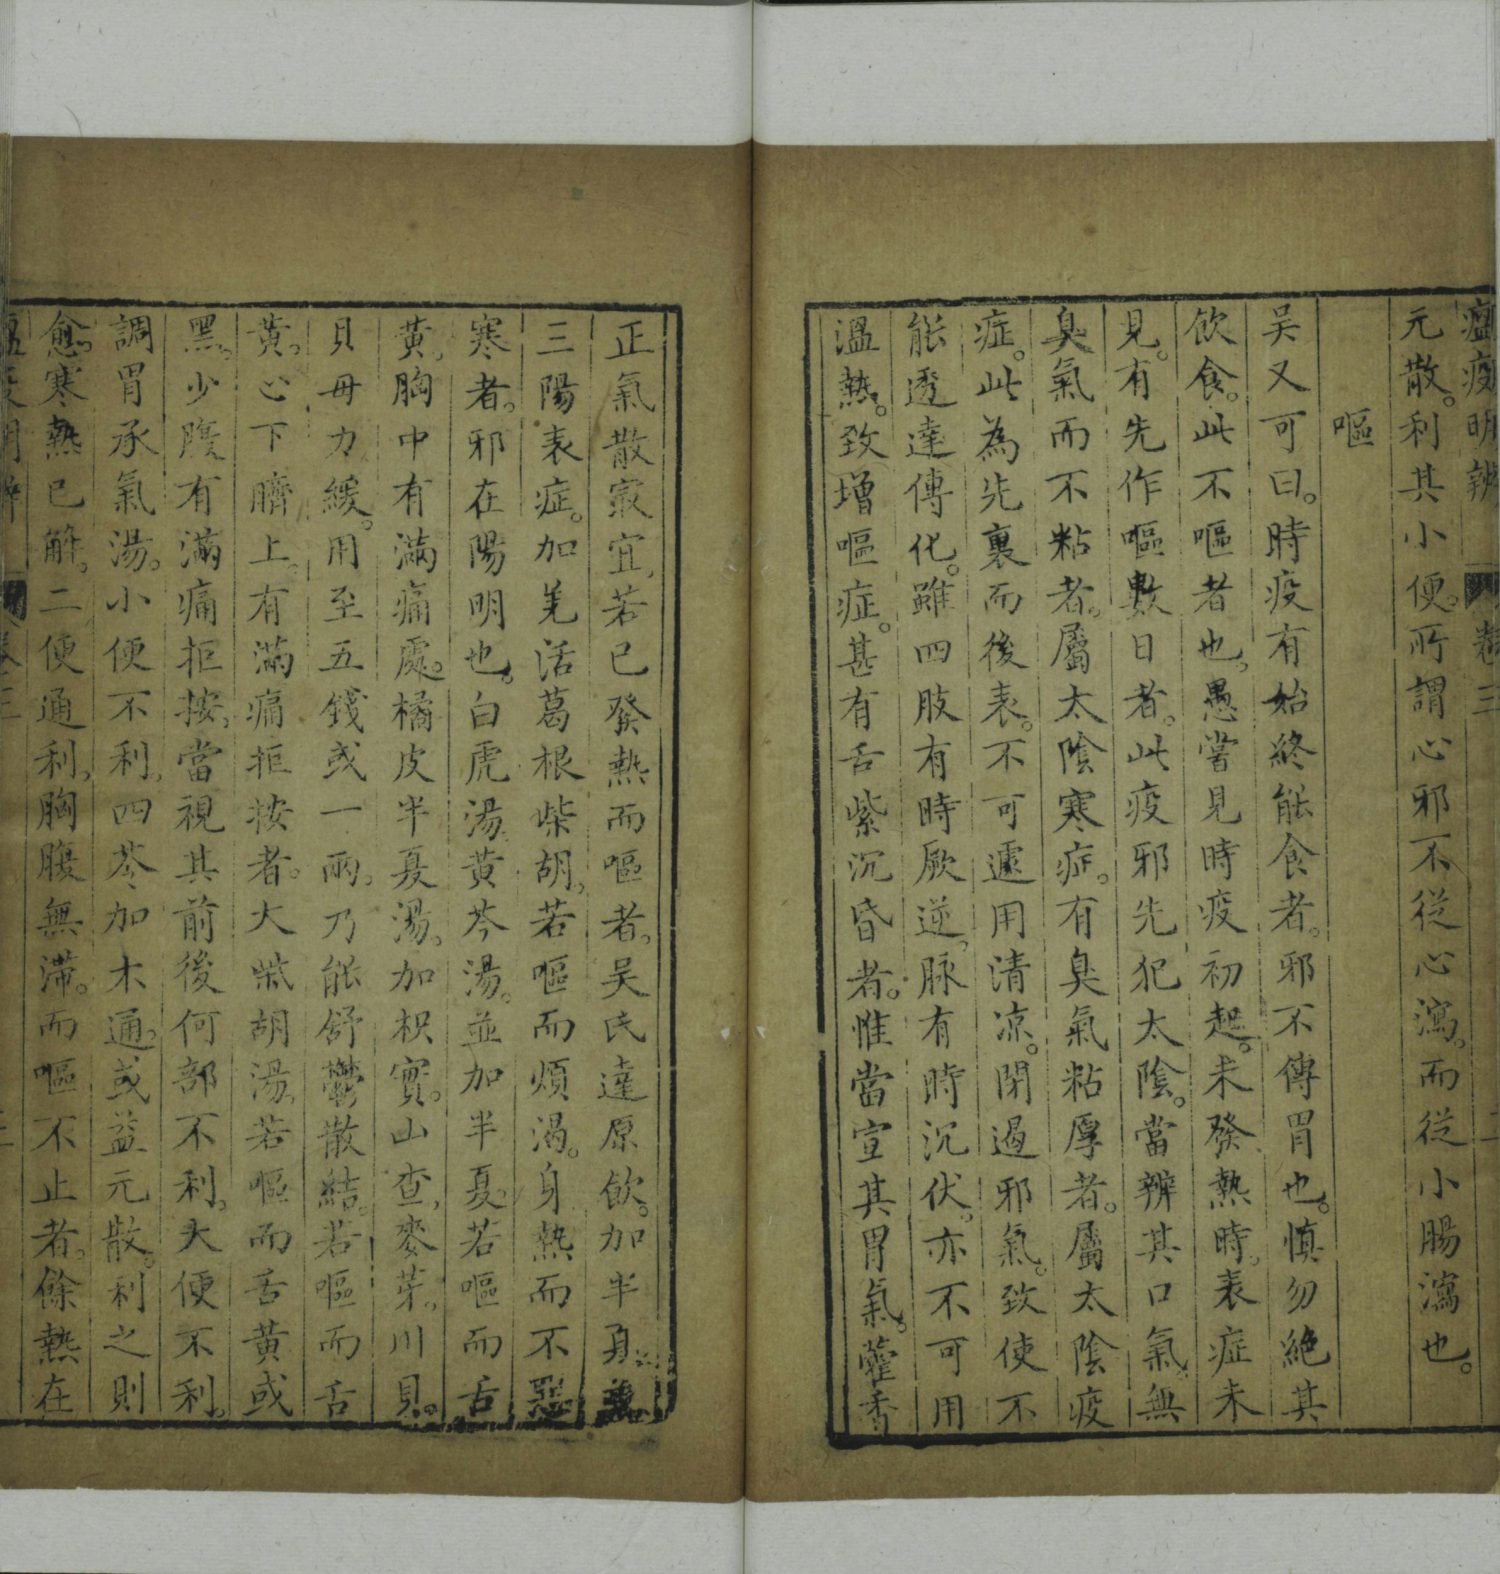 瘟疫明辨　卷三
元散。利其小便。所謂心邪不從心瀉。而從小腸瀉也。
嘔
吳又可曰。時疫有始終能食者。邪不傳胃也。慎勿絶其
飲食。此不嘔者也。愚嘗見時疫初起。未發熱時。表症未
見。有先作嘔數日者。此疫邪先犯太陰。當辨其口氣。無
臭氣而不粘者。屬太陰寒症。有臭氣粘厚者。屬太陰疫
症。此為先裏而後表。不可遽用清凉。閉遏邪氣。致使不
能透達傳化。雖四肢有時厥逆。脉有時沉伏。亦不可用
溫熱。致增嘔症。甚有舌紫沉昏者。惟當宣其胃氣。藿香
正氣散㝡宜。若已發熱而嘔者。吳氏達原飲。加半夏。兼
三陽表症。加羌活葛根柴胡。若嘔而煩渴。身熱而不惡
寒者。邪在陽明也。白虎湯黃芩湯。並加半夏。若嘔而舌
黃。胸中有滿痛處。橘皮半夏湯。加枳實。山查。麥芽。川貝。
貝母力緩。用至五錢或一兩。乃能舒鬱散結。若嘔而舌
黃。心下臍上。有滿痛拒按者。大柴胡湯。若嘔而舌黃或
黑。少腹有滿痛拒按。當視其前後何部不利。大便不利。
調胃承氣湯。小便不利。四苓加木通。或益元散。利之則
愈。寒熱已解。二便通利。胸腹無滯。而嘔不止者。餘熱在